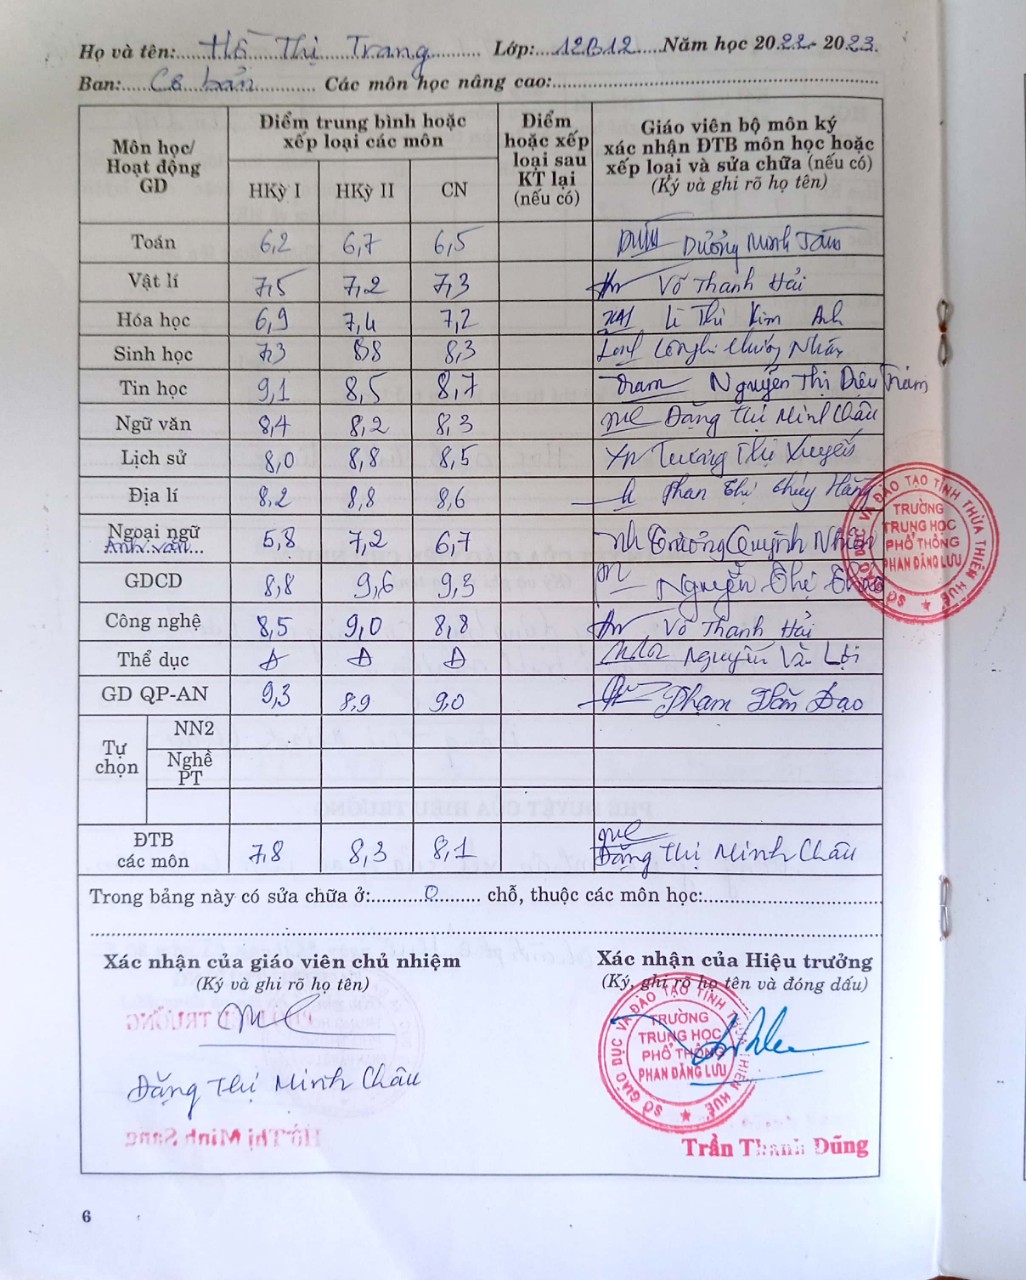 Họ và tên: Hồ Thị Trang Lớp: 12B12 Năm học 2022 - 2023
Ban: Cơ bản Các môn học nâng cao:
Môn học/ Hoạt động GD | Điểm trung bình hoặc xếp loại các môn | Điểm hoặc xếp loại sau KT lại (nếu có) | Giáo viên bộ môn ký xác nhận ĐTB môn học hoặc xếp loại và sửa chữa (nếu có) (Ký và ghi rõ họ tên)
HKỳ I HKỳ II CN
Toán 6,2 6,7 6,5 Dưỡng Minh Tâm
Vật lí 7,5 7,2 7,3 Võ Thanh Hải
Hóa học 6,9 7,4 7,2 Lê Thị Kim Anh
Sinh học 7,3 8,8 8,3
Tin học 9,1 8,5 8,7 Nguyễn Thị Diệu Trâm
Ngữ văn 8,4 8,2 8,3 Đặng Thị Minh Châu
Lịch sử 8,0 8,8 8,5 Trương Thị Xuyến
Địa lí 8,2 8,8 8,6 Phan Thị Thúy Hằng
Ngoại ngữ Anh văn 5,8 7,2 6,7 Trương Quỳnh
GDCD 8,8 9,6 9,3 Nguyễn Thị
Công nghệ 8,5 9,0 8,8 Võ Thanh Hải
Thể dục Đ Đ Đ Nguyễn Văn Lợi
GD QP-AN 9,3 8,9 9,0 Phạm Đạo
Tự chọn
NN2
Nghề PT
ĐTB các môn 7,8 8,3 8,1 Đặng Thị Minh Châu
Trong bảng này có sửa chữa ở: 0 chỗ, thuộc các môn học:
Xác nhận của giáo viên chủ nhiệm
(Ký và ghi rõ họ tên)
Đặng Thị Minh Châu
Xác nhận của Hiệu trưởng
(Ký, ghi rõ họ tên và đóng dấu)
Trần Thanh Dũng
SỞ GIÁO DỤC VÀ ĐÀO TẠO TỈNH THỪA THIÊN HUẾ
TRƯỜNG
TRUNG HỌC
PHỔ THÔNG
PHAN ĐĂNG LƯU
SỞ GIÁO DỤC VÀ ĐÀO TẠO TỈNH THỪA THIÊN HUẾ
TRƯỜNG
TRUNG HỌC
PHỔ THÔNG
PHAN ĐĂNG LƯU
6